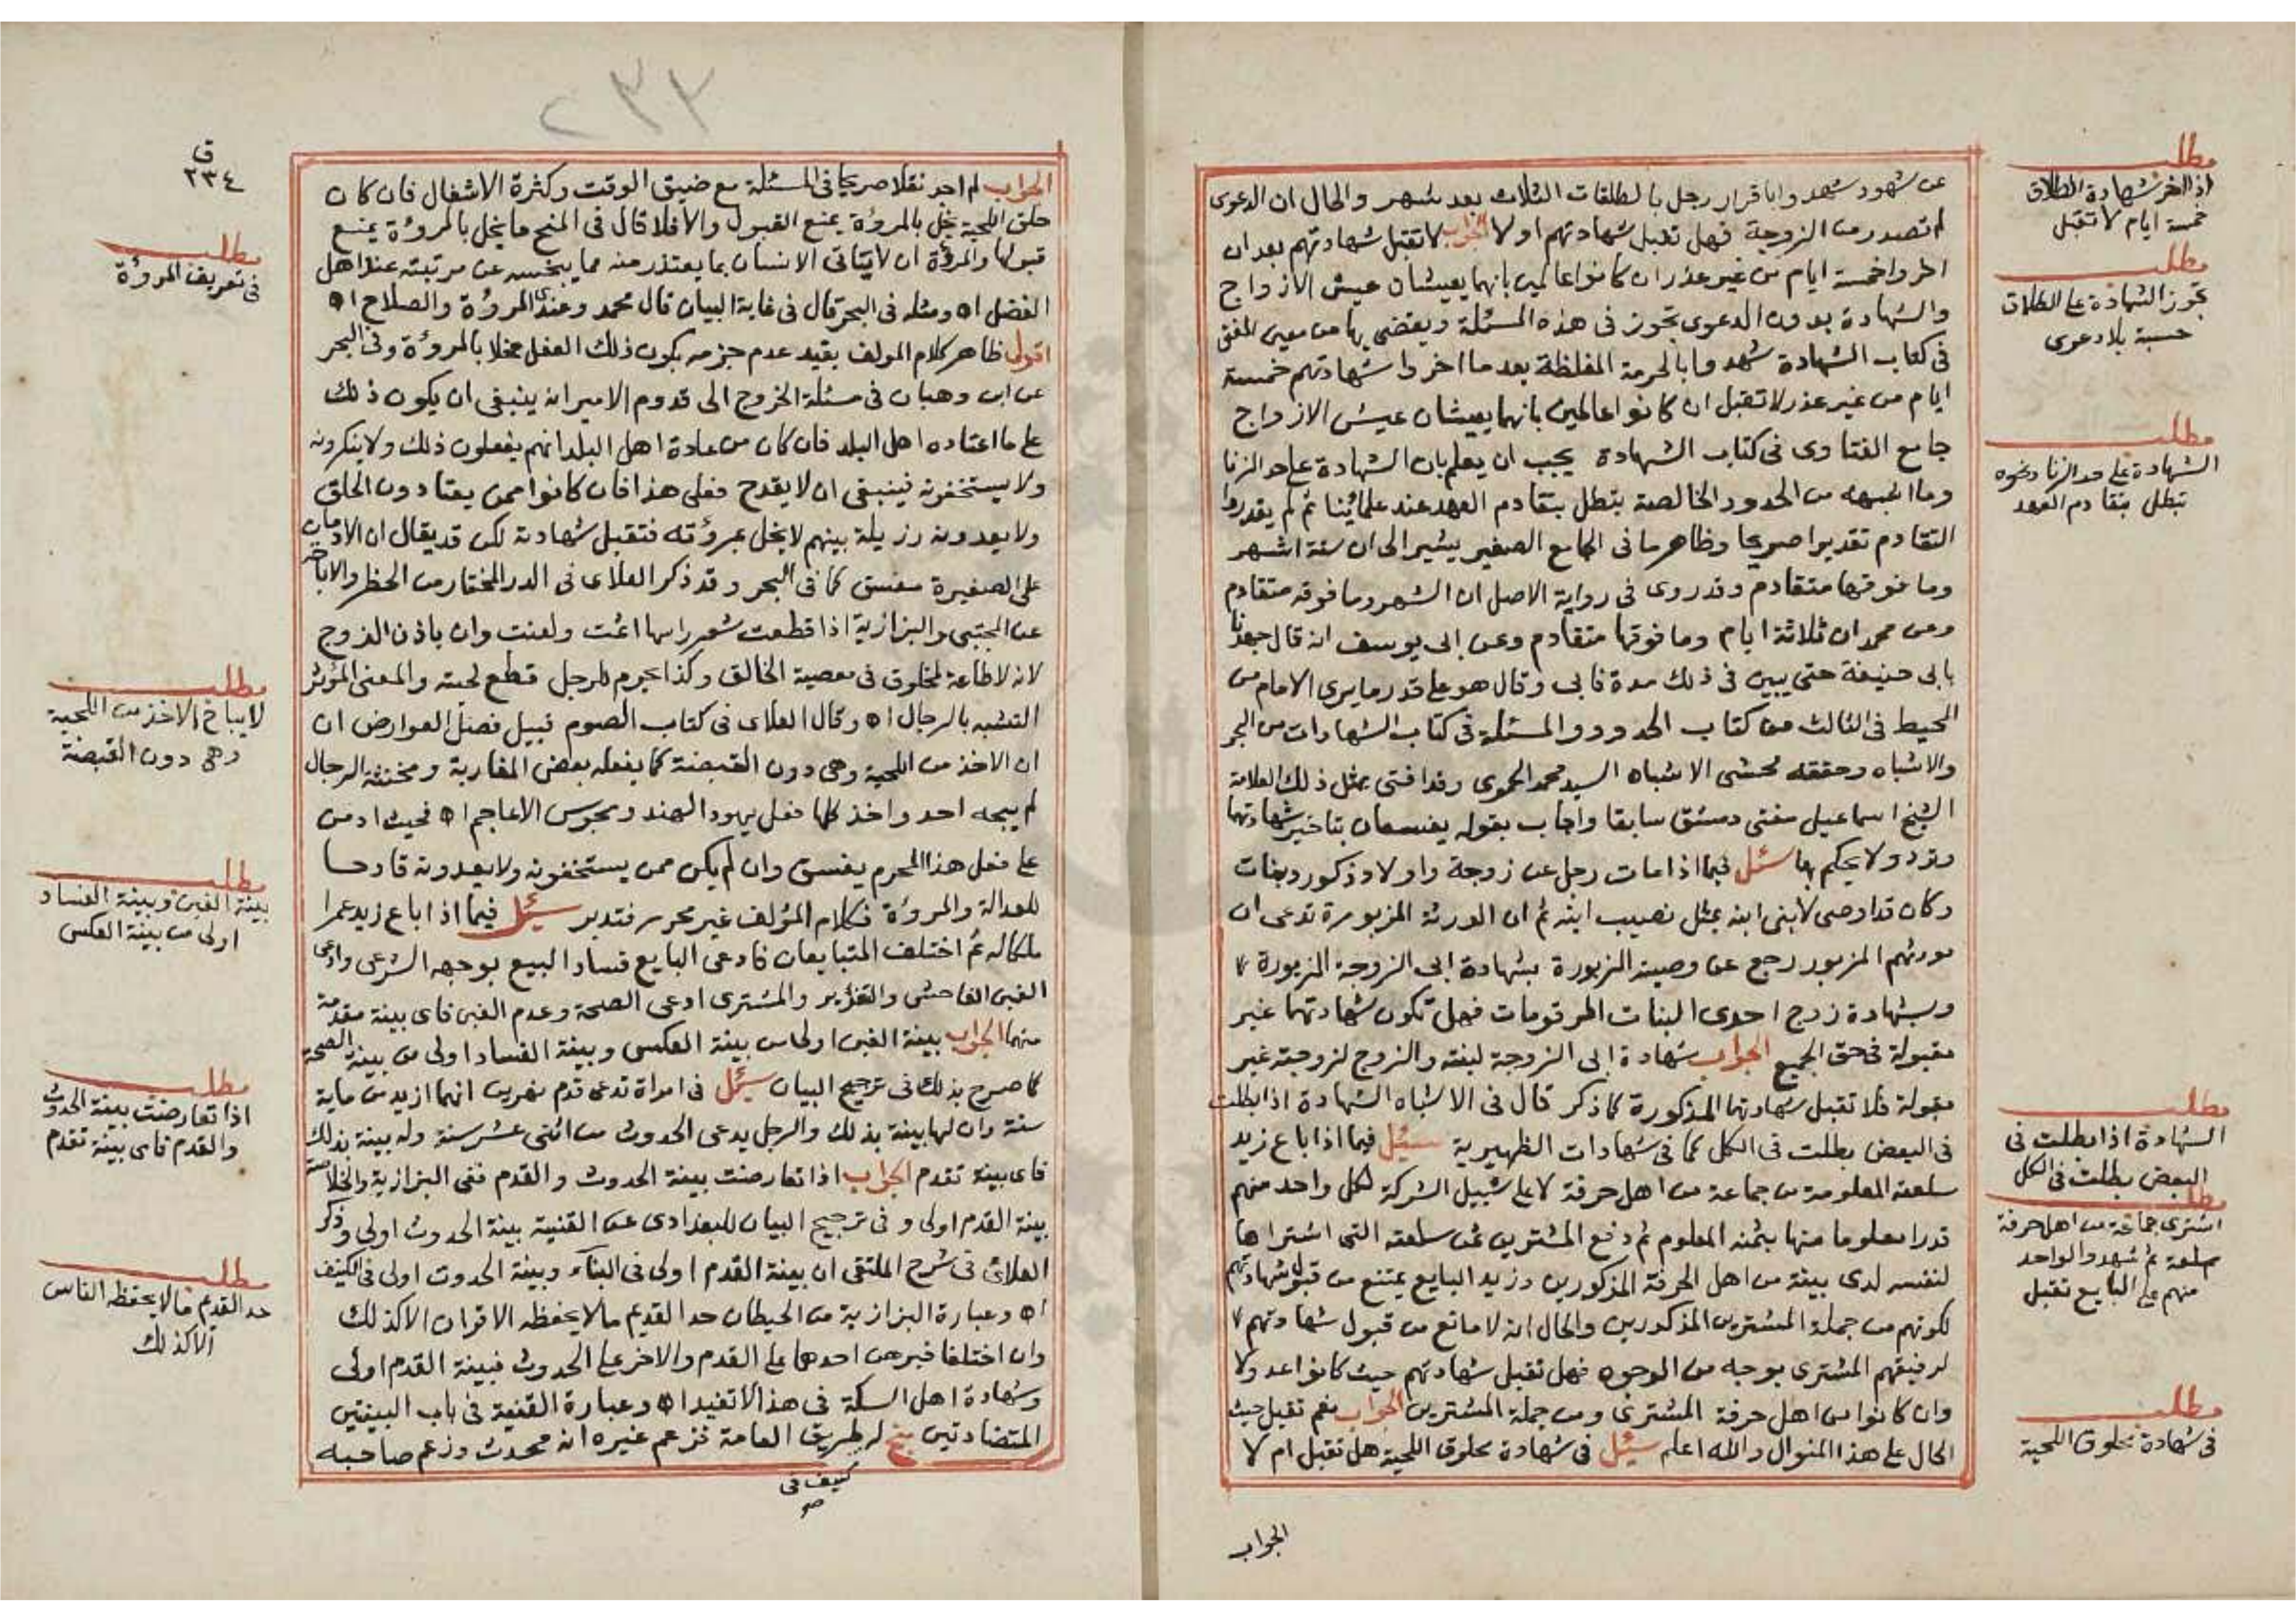 عن شهود شهدوا باقرار رجل بالطلقات الثلاث بعد شهر والحال ان الدعوى
لم تصدر من الزوجة فهل تقبل شهادتهم او لا الجواب لا تقبل شهادتهم بعد ان
اخروا خمسة ايام من غير عذر ان كانوا عالمين بانهما يعيشان عيش الازواج
والشهادة بدون الدعوى تجوز فى هذه المسئلة ويقضى بها من معين المفتى
فى كتاب الشهادة شهدوا بالحرمة المغلظة بعد ما اخروا شهادتهم خمسة
ايام من غير عذر لا تقبل ان كانوا عالمين بانهما يعيشان عيش الازواج
جامع الفتاوى فى كتاب الشهادة يجب ان يعلم بان الشهادة على حد الزنا
وما اشبهه من الحدود الخالصة تبطل بتقادم العهد عند علمائنا ثم لم يقدروا
التقادم تقديرا صريحا وظاهر ما فى الجامع الصغير يشير الى ان ستة اشهر
وما فوقها متقادم وقد روى فى رواية الاصل ان الشهر وما فوقه متقادم
وعن محمد ان ثلاثة ايام وما فوقها متقادم وعن ابى يوسف انه قال جهدنا
بابى حنيفة حتى يبين فى ذلك مدة فابى وقال هو على قدر ما يرى الامام من
المحيط فى الثالث من كتاب الحدود والمسئلة فى كتاب الشهادات من البحر
والاشباه وحققه محشى الاشباه السيد محمد الحموى وقد افتى بمثل ذلك العلامة
الشيخ اسماعيل مفتى دمشق سابقا واجاب بقوله يفسقان بتاخير شهادتهما
وترد ولا يحكم بها سئل فيما اذا مات رجل عن زوجة واولاد ذكور وبنات
وكان قد اوصى لابنى ابنه بمثل نصيب ابنه ثم ان الورثة المزبورة تدعى ان
مورثهم المزبور رجع عن وصيته المزبورة بشهادة ابى الزوجة المزبورة
وبشهادة زوج احدى البنات المرقومات فهل تكون شهادتهما غير
مقبولة فى حق الجميع الجواب شهادة ابى الزوجة لبنته والزوج لزوجته غير
مقبولة فلا تقبل شهادتهما المذكورة كما ذكر قال فى الاشباه الشهادة اذا بطلت
فى البعض بطلت فى الكل كما فى شهادات الظهيرية سئل فيما اذا باع زيد
سلعته المعلومة من جماعة من اهل حرفة لا على سبيل الشركة لكل واحد منهم
قدرا معلوما منها بثمنه المعلوم ثم دفع المشترين ثمن سلعته التى اشتراها
لنفسه لدى بينة من اهل الحرفة المذكورين وزيد البايع يمتنع من قبول شهادتهم
لكونهم من جملة المشترين المذكورين والحال انه لا مانع من قبول شهادتهم
لرفيقهم المشترى بوجه من الوجوه فهل تقبل شهادتهم حيث كانوا عدولا
وان كانوا من اهل حرفة المشترى ومن جملة المشترين الجواب نعم تقبل حيث
الحال على هذا المنوال والله اعلم سئل فى شهادة محلوق اللحية هل تقبل ام لا
الجواب
مطلب
اذا اخر شهادة الطلاق
خمسة ايام لا تقبل
مطلب
تجوز الشهادة على الطلاق
حسبة بلا دعوى
مطلب
الشهادة على حد الزنا ونحوه
تبطل بتقادم العهد
مطلب
الشهادة اذا بطلت فى
البعض بطلت فى الكل
مطلب
اشترى جماعة من اهل حرفة
سلعة ثم شهدوا لواحد
منهم على البايع تقبل
مطلب
فى شهادة محلوق اللحية
٢٣٣
ق
٢٣٤
الجواب لم اجد نقلا صريحا فى المسئلة مع ضيق الوقت وكثرة الاشغال فان كان
حلق اللحية يخل بالمروؤة يمنع القبول والا فلا قال فى المنح ما يخل بالمروؤة يمنع
قبولها والمروؤة ان لا ياتى الانسان بما يعتذر منه مما يبخسه عن مرتبته عند اهل
الفضل اه ومثله فى البحر قال فى غاية البيان قال محمد وعندى المروؤة والصلاح اه
اقول ظاهر كلام المولف يفيد عدم جزمه بكون ذلك الفعل مخلا بالمروؤة وفى البحر
عن ابن وهبان فى مسئلة الخروج الى قدوم الامير انه ينبغى ان يكون ذلك
على ما اعتاده اهل البلد فان كان من عادة اهل البلد انهم يفعلون ذلك ولا ينكرونه
ولا يستخفونه فينبغى ان لا يقدح فعلى هذا فان كانوا ممن يعتادون الحلق
ولا يعدونه رزيلة بينهم لا يخل بمروؤته فتقبل شهادته لكن قد يقال ان الادمان
على الصغيرة مفسق كما فى البحر وقد ذكر العلاى فى الدر المختار من الحظر والاباحة
عن المجتبى والبزازية اذا قطعت شعر راسها اثمت ولعنت وان باذن الزوج
لانه لا طاعة لمخلوق فى معصية الخالق وكذا يحرم للرجل قطع لحيته والمعنى المؤثر
التشبه بالرجال اه وقال العلاى فى كتاب الصوم قبيل فصل العوارض ان
ان الاخذ من اللحية وهى دون القبضة كما يفعله بعض المغاربة ومخنثة الرجال
لم يبحه احد واخذ كلها فعل يهود الهند ومجوس الاعاجم اه فحيث ادمن
على فعل هذا المحرم يفسق وان لم يكن ممن يستخفونه ولا يعدونه قادحا
للعدالة والمروؤة فكلام المؤلف غير محرر فتدبر سئل فيما اذا باع زيد عمرا
ملكاله ثم اختلف المتبايعان فادعى البايع فساد البيع بوجهه الشرعى وادعى
الغبن الفاحش والتغرير والمشترى ادعى الصحة وعدم الغبن فاى بينة مقدمة
منهما الجواب بينة الغبن اولى من بينة العكس وبينة الفساد اولى من بينة الصحة
كما صرح بذلك فى ترجيح البيان سئل فى امراة تدعى قدم نهرين انهما ازيد من ماية
سنة وان لها بينة بذلك والرجل يدعى الحدوث من اثنى عشر سنة وله بينة بذلك
فاى بينة تقدم الجواب اذا تعارضت بينة الحدوث والقدم ففى البزازية والخلاصة
بينة القدم اولى وفى ترجيح البيان للبغدادى عن القنية بينة الحدوث اولى وذكر
العلائى فى شرح الملتقى ان بينة القدم اولى فى البناء وبينة الحدوث اولى فى الكنيف
اه وعبارة البزازية من الحيطان حد القديم مالا يحفظه الاقران الا كذلك
وان اختلفا فبرهن احدهما على القدم والاخر على الحدوث فبينة القدم اولى
وشهادة اهل السكة فى هذا لا تفيد اه وعبارة القنية فى باب البينتين
المتضادتين بخ له طريق العامة فزعم غيره انه محدث وزعم صاحبه
كنيف فى
صح
مطلب
فى تعريف المروؤة
مطلب
لا يباح الاخذ من اللحية
وهى دون القبضة
مطلب
بينة الغبن وبينة الفساد
اولى من بينة العكس
مطلب
اذا تعارضت بينة الحدوث
والقدم فاى بينة تقدم
مطلب
حد القديم مالا يحفظه الناس
الا كذلك